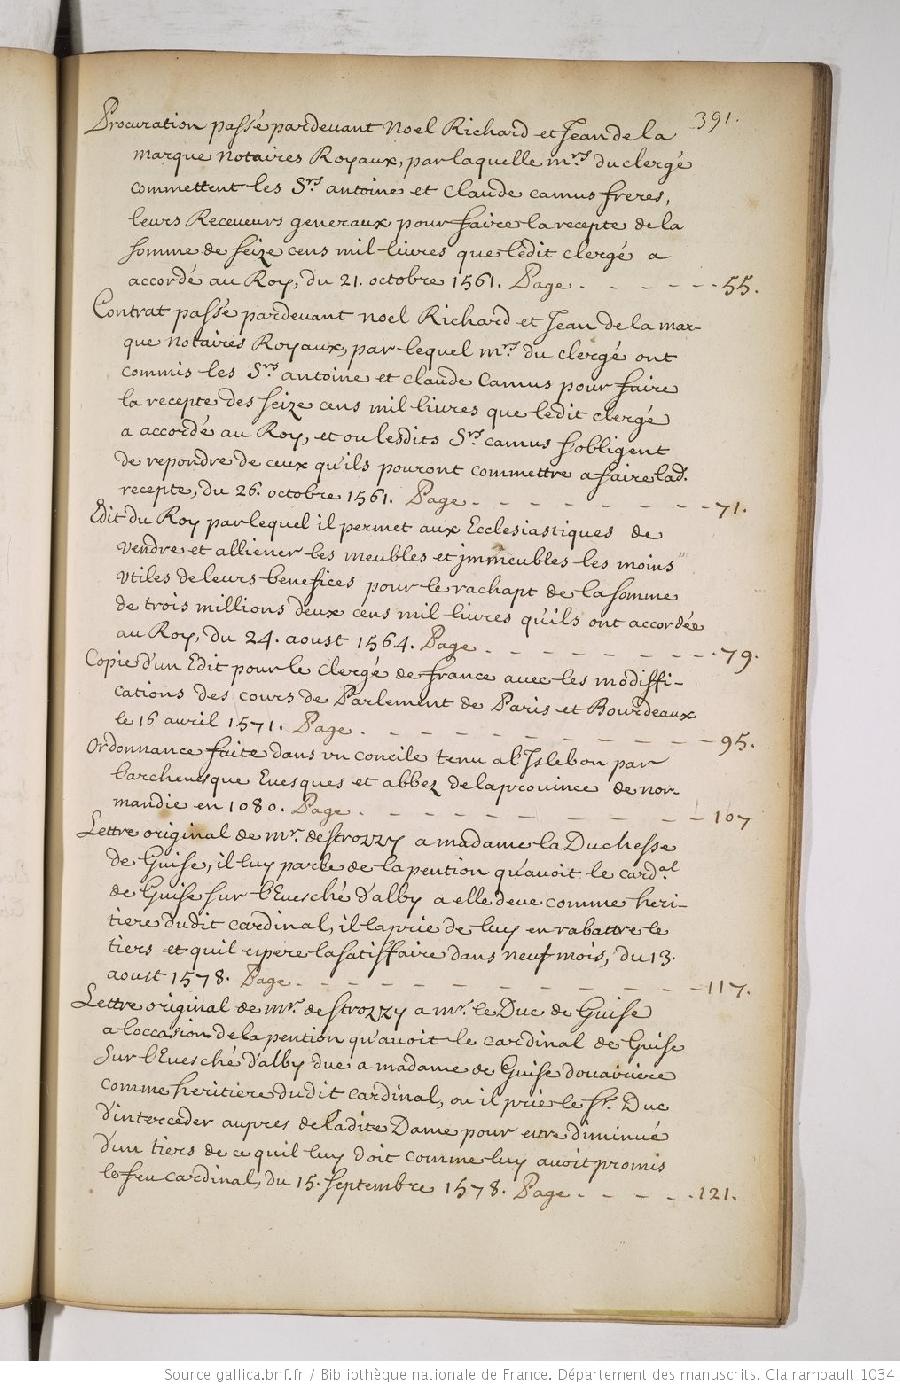 391.
Procuration passé pardevant Noel Richard et Jean de la
marque Notaires Royaux, par laquelle mrs. du clergé
commettent les Srs. antoine et claude camus freres,
leurs Receveurs generaux pour faire la recepte de la
somme de seize cens mil livres que ledit clergé a
accordé au Roy, du 21. octobre 1561. Page. - - - - - 55.
Contrat passé pardevant Noel Richard et Jean de la mar-
que Notaires Royaux, par lequel mrs. du clergé ont
commis les Srs. antoine et claude Camus pour faire
la recepte des seize cens mil livres que ledit clergé
a accordé au Roy, et ou lesdits Srs. camus sobligent
de repondre de ceux qu'ils pouront commettre a faire lad.
recepte, du 26. octobre 1561. Page - - - - - - - - 71.
Edit du Roy par lequel il permet aux Ecclesiastiques de
vendre et alliener les meubles et jmmeubles les moins
vtiles de leurs benefices pour le rachapt de la somme
de trois millions deux cens mil livres qu'ils ont accordée
au Roy, du 24. aoust 1564. Page - - - - - - - 79.
Copie d'un Edit pour le clergé de france avec les modiffi-
cations des cours de Parlement de Paris et Bourdeaux
le 16 avril 1571. Page - - - - - - - - - - - 95.
Ordonnance faite dans vn concile tenu a l'Islebon par
larchevesque Evesques et abbez de la province de nor-
mandie en 1080. Page - - - - - - - - - - - 107
Lettre original de mr. de strozzy a madame la Duchesse
de Guise, il luy parle de la pention qu'avoit le cardal
de Guise sur l'Evesché d'alby a elle deue comme heri-
tiere dudit cardinal, il la prie de luy en rabattre le
tiers et quil espere la satisfaire dans neuf mois, du 13.
aoust 1578. Page - - - - - - - - - - - - - 117.
Lettre original de mr. de strozzy a mr. le Duc de Guise
a loccasion de la pention qu'avoit le cardinal de Guise
sur l'Evesché d'alby due a madame de Guise douairiere
comme heritiere dudit cardinal, ou il prie le sr. Duc
d'interceder aupres de ladite Dame pour estre diminué
d'un tiers de ce quil luy doit comme luy avoit promis
le feu cardinal, du 15. septembre 1578. Page - - - - - 121.
Source gallica.bnf.fr / Bibliothèque nationale de France. Département des manuscrits. Clairambault 1034